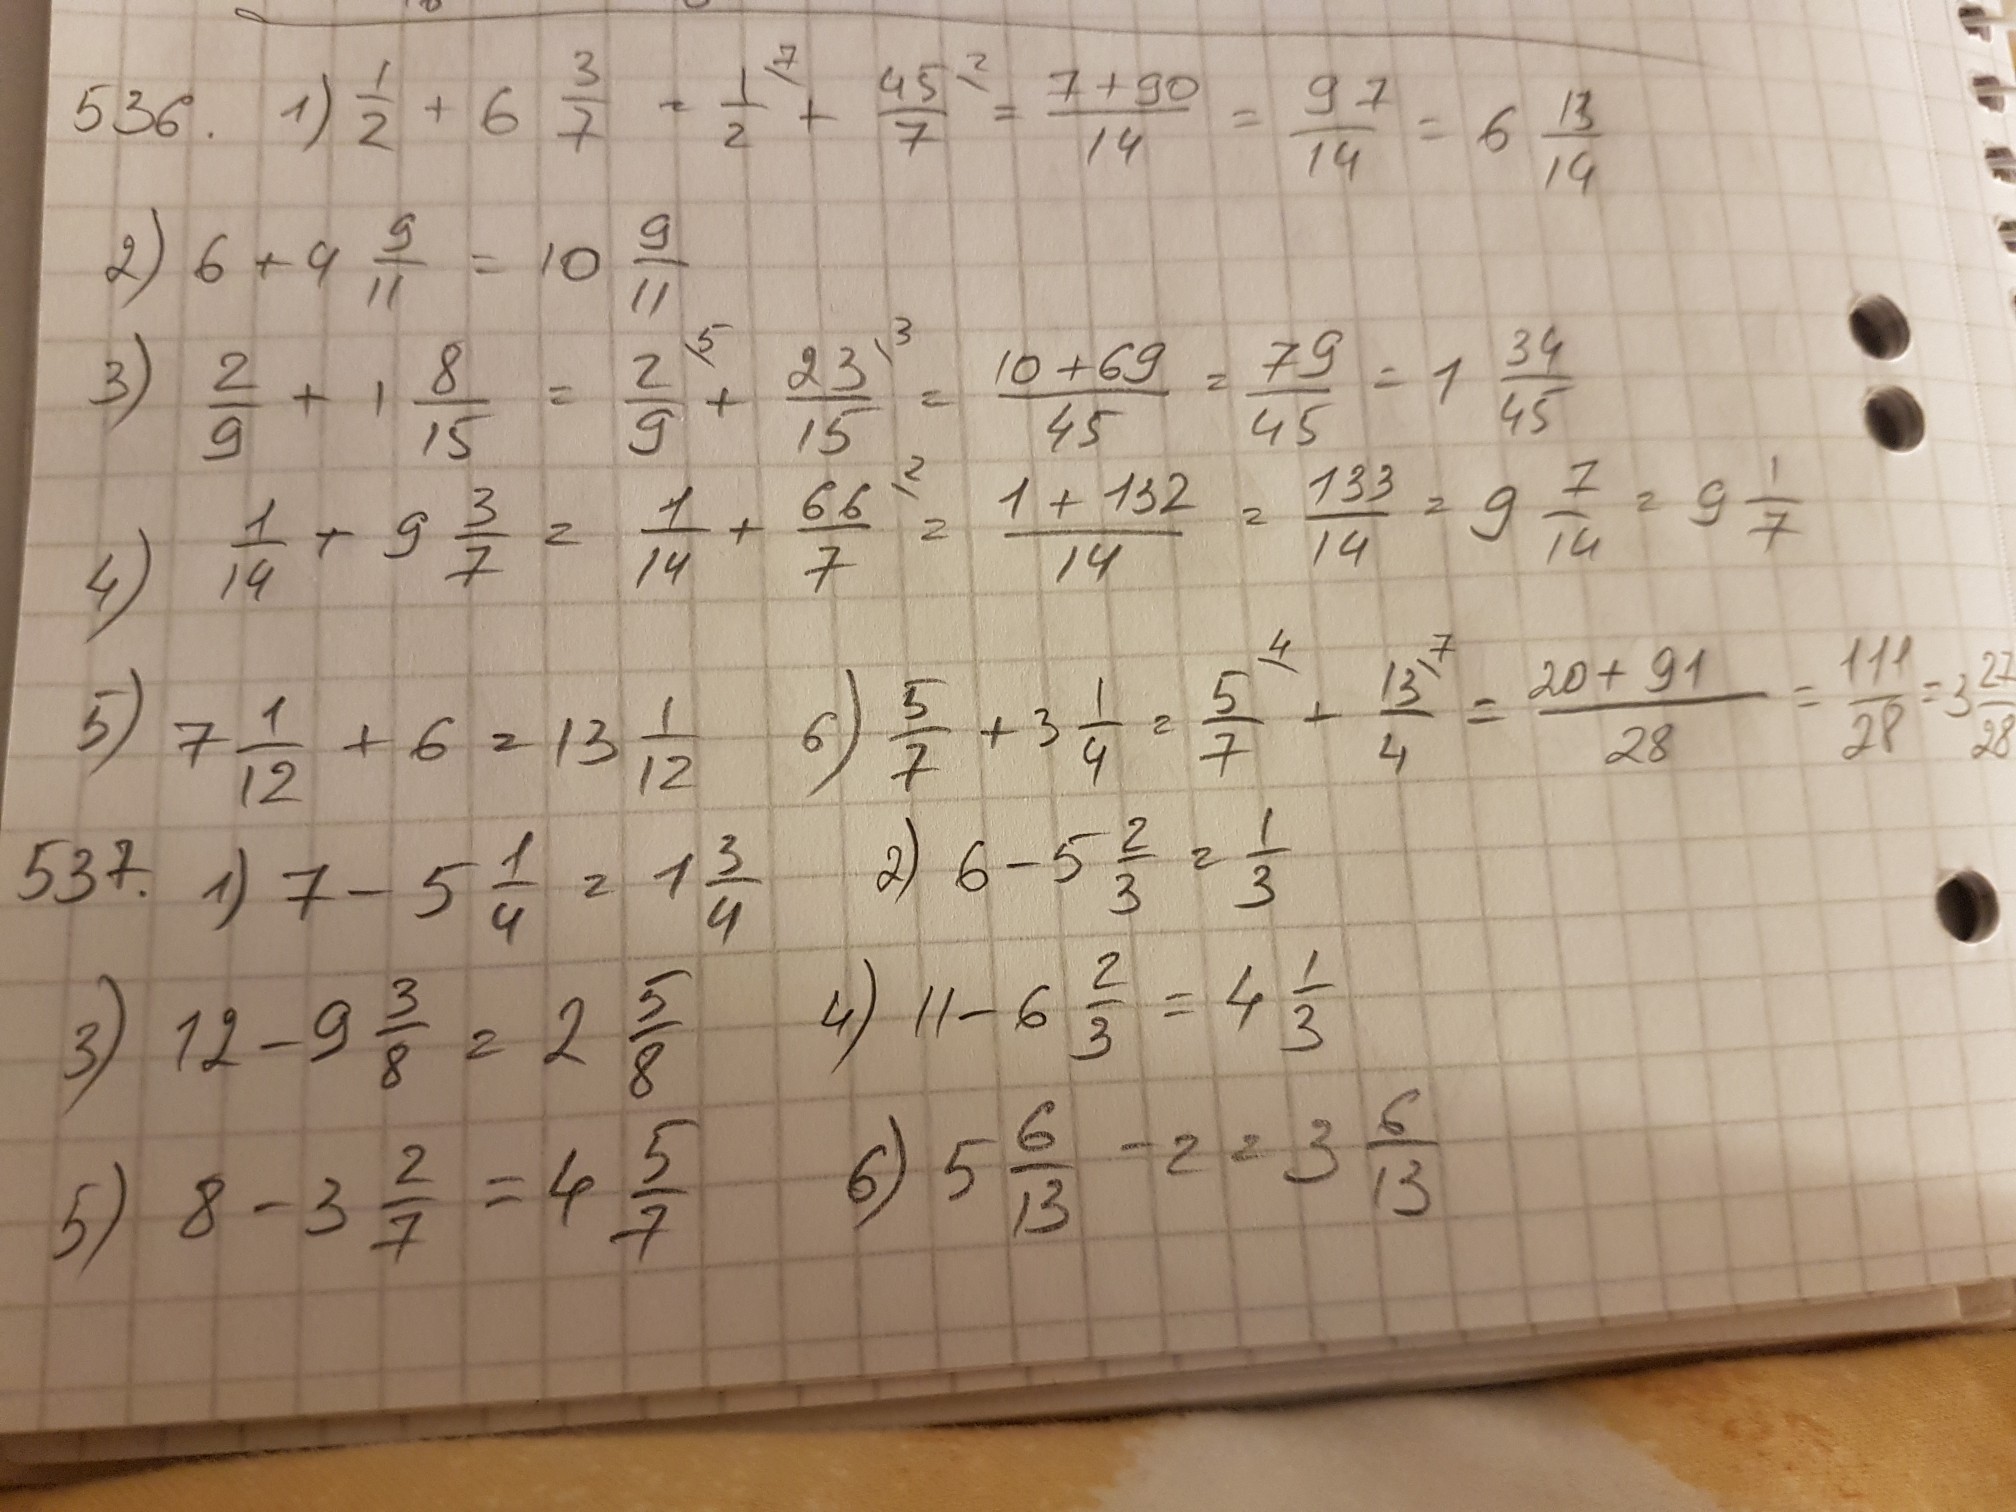 536. 1) 1/2 + 6 3/7 = 1/2 \7 + 45/7 \2 = (7+90)/14 = 97/14 = 6 13/14
2) 6 + 4 9/11 = 10 9/11
3) 2/9 + 1 8/15 = 2/9 \5 + 23/15 \3 = (10+69)/45 = 79/45 = 1 34/45
4) 1/14 + 9 3/7 = 1/14 + 66/7 \2 = (1+132)/14 = 133/14 = 9 7/14 = 9 1/7
5) 7 1/12 + 6 = 13 1/12 6) 5/7 + 3 1/4 = 5/7 \4 + 13/4 \7 = (20+91)/28 = 111/28 = 3 27/28
537. 1) 7 - 5 1/4 = 1 3/4 2) 6 - 5 2/3 = 1/3
3) 12 - 9 3/8 = 2 5/8 4) 11 - 6 2/3 = 4 1/3
5) 8 - 3 2/7 = 4 5/7 6) 5 6/13 - 2 = 3 6/13